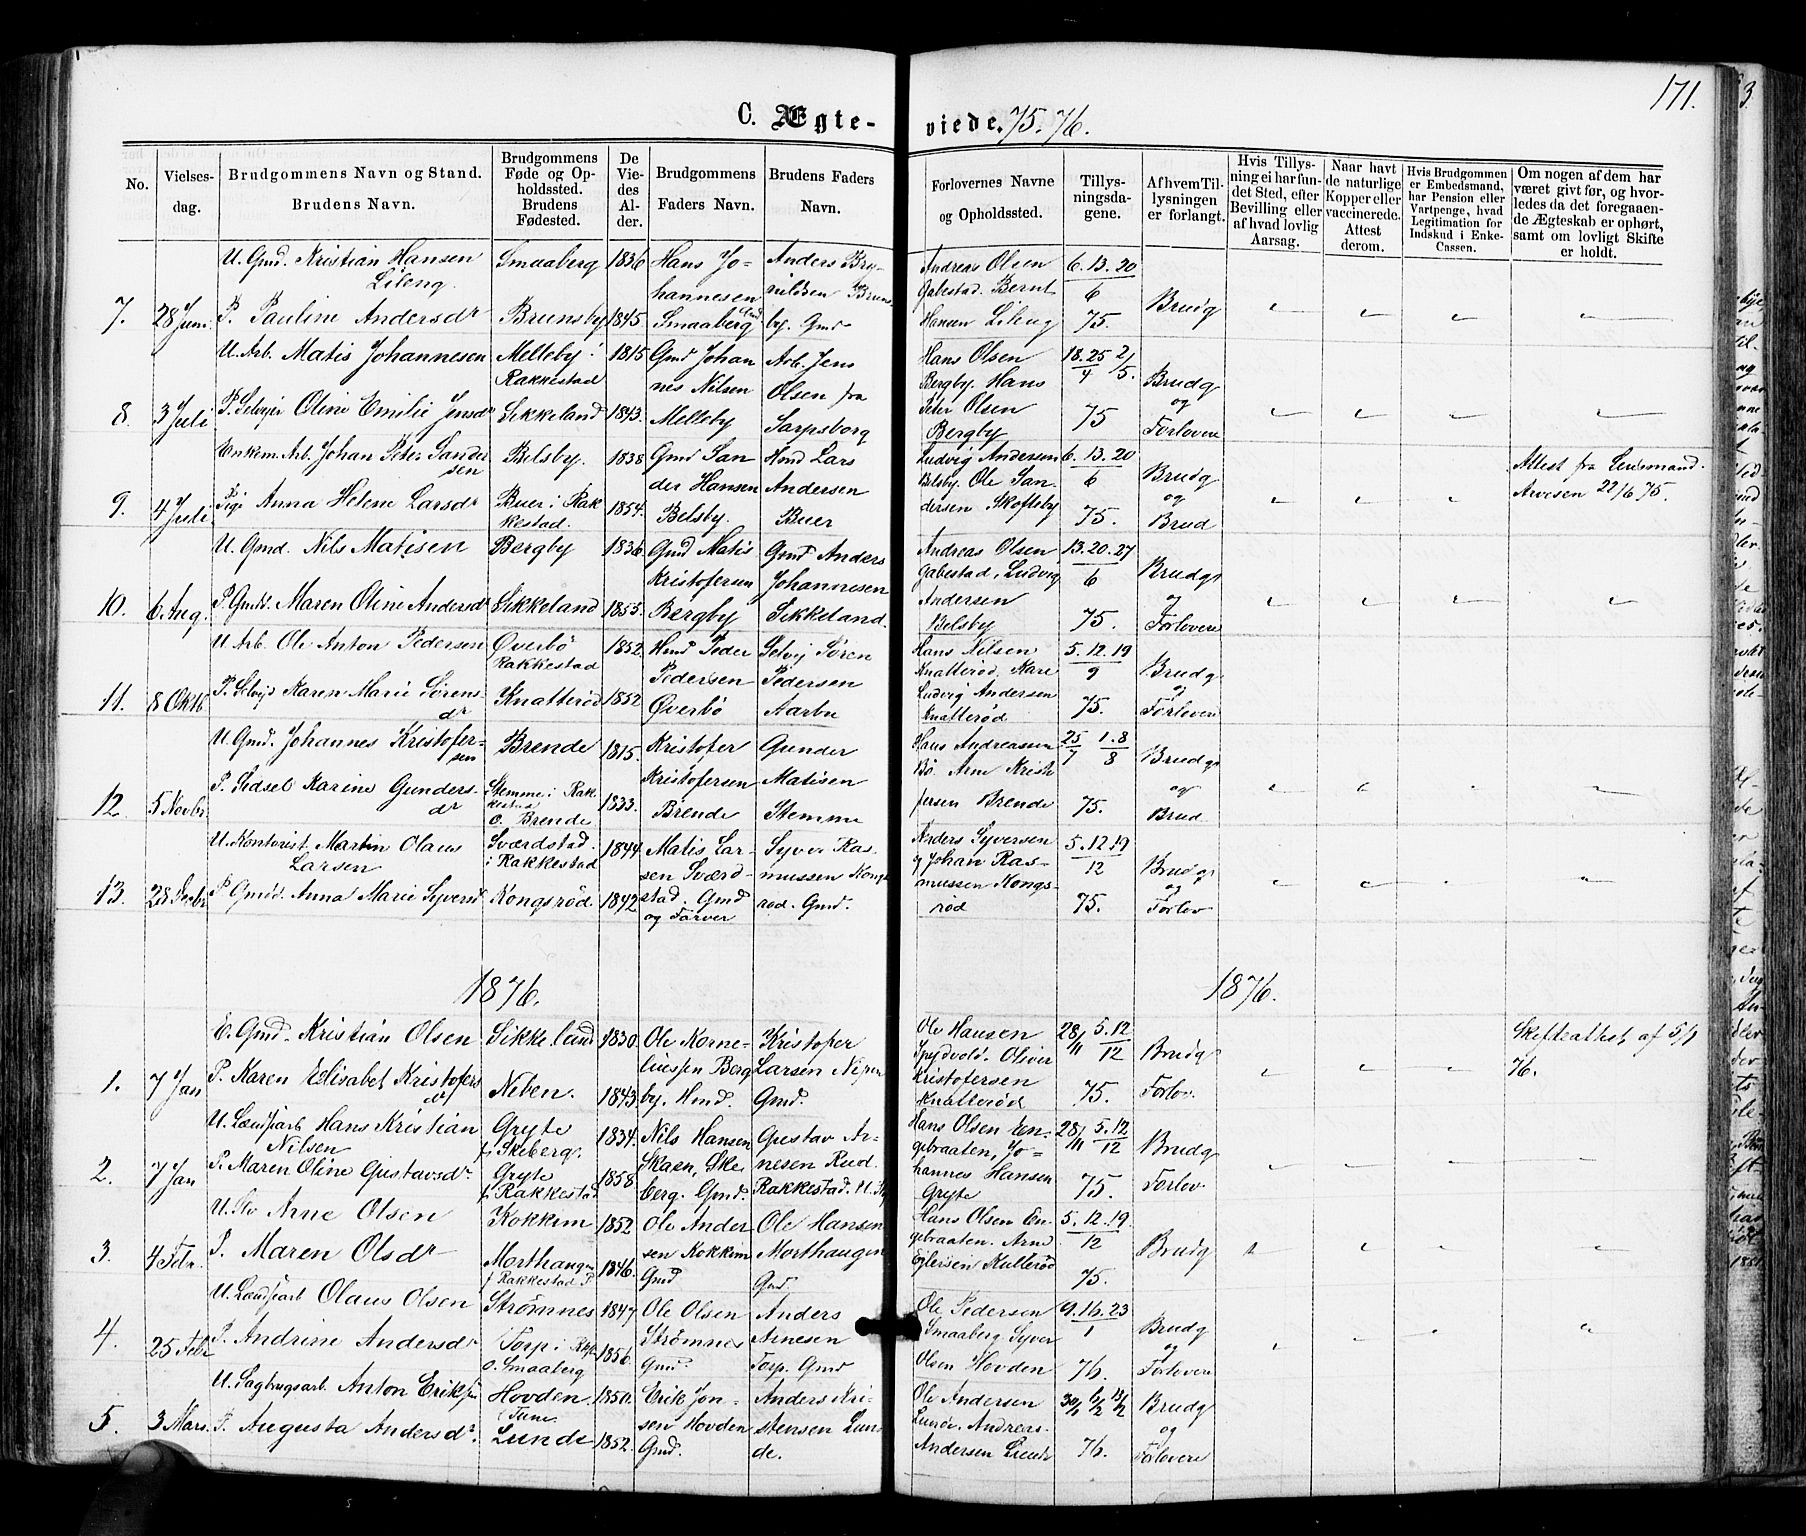 171.
C. Ægteviede. 75. 76.
No. Vielsesdag. Brudgommens Navn og Stand. Brudens Navn. Brudgommens Føde og Opholdssted. Brudens Fødested. De Viedes Alder. Brudgommens Faders Navn. Brudens Faders Navn. Forlovernes Navne og Opholdssted. Tillysningsdagene. Af hvem Tillysningen er forlangt. Hvis Tillysning ei har fundet Sted, efter Bevilling eller af hvad lovlig Aarsag. Naar havt de naturlige Kopper eller vaccinerede. Attest derom. Hvis Brudgommen er Embedsmand, har Pension eller Vartpenge, hvad Legitimation for Indskud i Enke-Cassen. Om nogen af dem har været givt før, og hvorledes da det foregaaende Ægteskab er ophørt, samt om lovligt Skifte er holdt.
U. Gmd. Kristian Hansen Lileng. Smaaberg 1836 Hans Johannesen Smaaberg Gmd Anders Brynildsen Brunsby. Gmd Andreas Olsen Gabestad. Bernt Hansen Lileng 6. 13. 20 / 6 75. Brudg
7. 28 Juni P. Pauline Andersdr Brunsby 1845
U. Arb. Matis Johannesen Melleby i Rakkestad 1815 Gmd Johannes Nilsen Melleby Arb. Jens Olsen fra Sarpsborg Hans Olsen Bergby. Hans Peter Olsen Bergby 18. 25 / 4 2/5. 75 Brudg og Forlovere
8. 3 Juli P. Selvejer Oline Emilie Jensdr Sikkeland 1843.
Enkem. Arb. Johan Peter Sandersen Belsby. 1838 Gmd Sander Hansen Belsby. Hmd Lars Andersen Buer Ludvig Andersen Belsby. Ole Sandersen Skoftsby 6. 13. 20 / 6 75. Brudg og Brud Attest fra Lensmand Arvesen 22/6 75.
9. 4 Juli Pige Anna Helene Larsdr Buer i Rakkestad. 1854.
U. Gmd. Nils Matisen Bergby 1836 Gmd Matis Kristofersen Bergby Gmd Anders Johannesen Sikkeland. Andreas Olsen Gabestad, Ludvig Andersen Belsby 13. 20. 27 / 6 75. Brudg og Forlovere
10. 6. Aug. P. Gmd. Maren Oline Andersdr Sikkeland 1855.
U. Arb. Ole Anton Pedersen Øverbö Rakkestad 1852. Hmd Peder Pedersen Øverbö Selvej Sören Pedersen Aarbu Hans Nilsen Knatteröd, Kare Ludvig Andersen Knatteröd 5. 12. 19 / 9 75. Brudg og Forlovere
11. 8 Oktb P. Selvejd Karen Marie Sörensdr Knatteröd 1852
U. Gmd. Johannes Kristofersen Brende 1815. Kristofer Kristofersen Brende Gunder Matisen Stemme Hans Andreassen Bö. Arne Kristofersen Brende 25/7 1. 8 / 8 75. Brudg og Brud
12. 5 Novbr P. Sidsel Karine Gundersdr Stemme i Rakkestad o. Brende 1833.
U. Kontorist Martin Olaus Larsen Sværdstad i Rakkestad 1844. Matis Larsen Sværdstad. Gmd og Farver Syver Rasmussen Kongsrod. Gmd. Anders Syversen og Johan Rasmussen Kongsröd 5. 12. 19 / 12 75. Brudg og Forlov
13. 28 Decbr P. Gmd. Anna Marie Syversd Kongsröd. 1842
1876. 1876.
E. Gmd. Kristian Olsen Sikkeland 1830. Ole Korneliussen Bergby. Hmd. Kristofer Larsen Niben Gmd. Ole Hansen Spydvold. Oliver Kristofersen Knatteröd 28/11 5. 12 / 12 75. Brudg Forlov Skifteattest af 5/1 76.
1. 7 Jan P. Karen Elisabet Kristofersdr Niben. 1843
U. Landsarb Hans Kristian Nilsen Gryte f. Skeberg. 1834. Nils Hansen Skaen, Skeberg. Gmd. Gustav Arnesen Rud. Rakkestad. Hans Olsen Engebraaten, Johannes Hansen Gryte 28/11 5. 12 / 12 75. Brudg Forlov
2. 7 Jan P. Maren Oline Gustavsdr Gryte f. Rakkestad 1858
U. Arne Olsen Kokkim 1852 Ole Andersen Kokkim Gmd Ole Hansen Morthaugen Gmd. Hans Olsen Engebraaten. Arne Eilersen Kulleröd 5. 12. 19 / 12 75. Brudg
3. 4 Febr. P. Maren Olsdr Morthaugen f. Rakkestad P 1846.
U. Landsarb Olaus Olsen Strömnes 1847 Ole Olsen Strömnes Gmd Anders Arnesen Torp. Gmd Ole Pedersen Smaaberg Syver Olsen Hovden 9. 16. 23 / 1 76. Brudg og Forlovere
4. 25 Febr P. Andrine Andersdr Torp i Rkk. o. Smaaberg 1856.
U. Sagbrugsarb. Anton Eriksen Hovden i Tune 1850. Erik Jonsen Hovden Gmd. Anders Kristensen Lunde. Ole Andersen Lunde. Andreas Andersen Lunde 30/1 6/2 13/2 76. Brudg og Forlovere
5. 3 Mars. P. Augusta Andersdr. Lunde 1852.